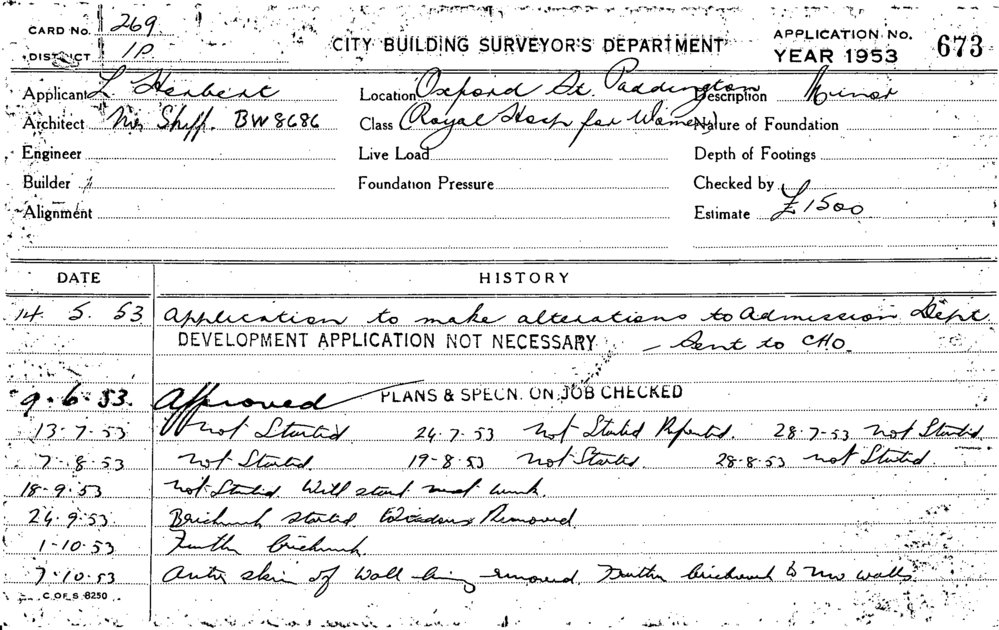 CARD No. 269
DISTRICT 1P
CITY BUILDING SURVEYOR'S DEPARTMENT
APPLICATION No. 673
YEAR 1953
Applicant L Herbert Location Oxford St. Paddington Description Minor
Architect Mr Shiff. BW8686 Class (Royal Hosp for Women) Nature of Foundation
Engineer Live Load Depth of Footings
Builder Foundation Pressure Checked by
Alignment Estimate £1500
DATE HISTORY
14. 5. 53 Application to make alterations to Admission Dept
DEVELOPMENT APPLICATION NOT NECESSARY – Sent to CHO.
9.6.53. Approved PLANS & SPECN. ON JOB CHECKED
13-7-53 Not Started 24.7.53 Not Started Reported. 28.7-53 Not Started.
7-8-53 Not Started. 19-8-53 Not Started. 28-8-53 Not Started.
18-9-53 Not Started. Will start next week.
24.9.53. Brickwork started Removed
1-10-53 Further brickwork.
7.10.53 skin of wall being removed. Further brickwork to walls
C. OF S. 8250